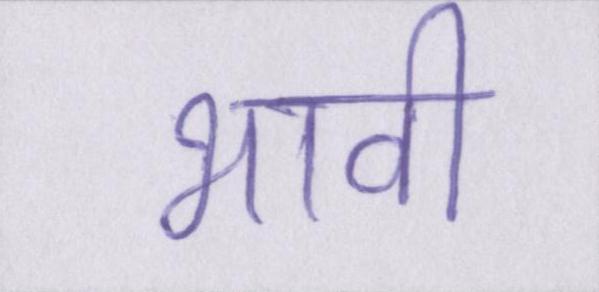 भावी